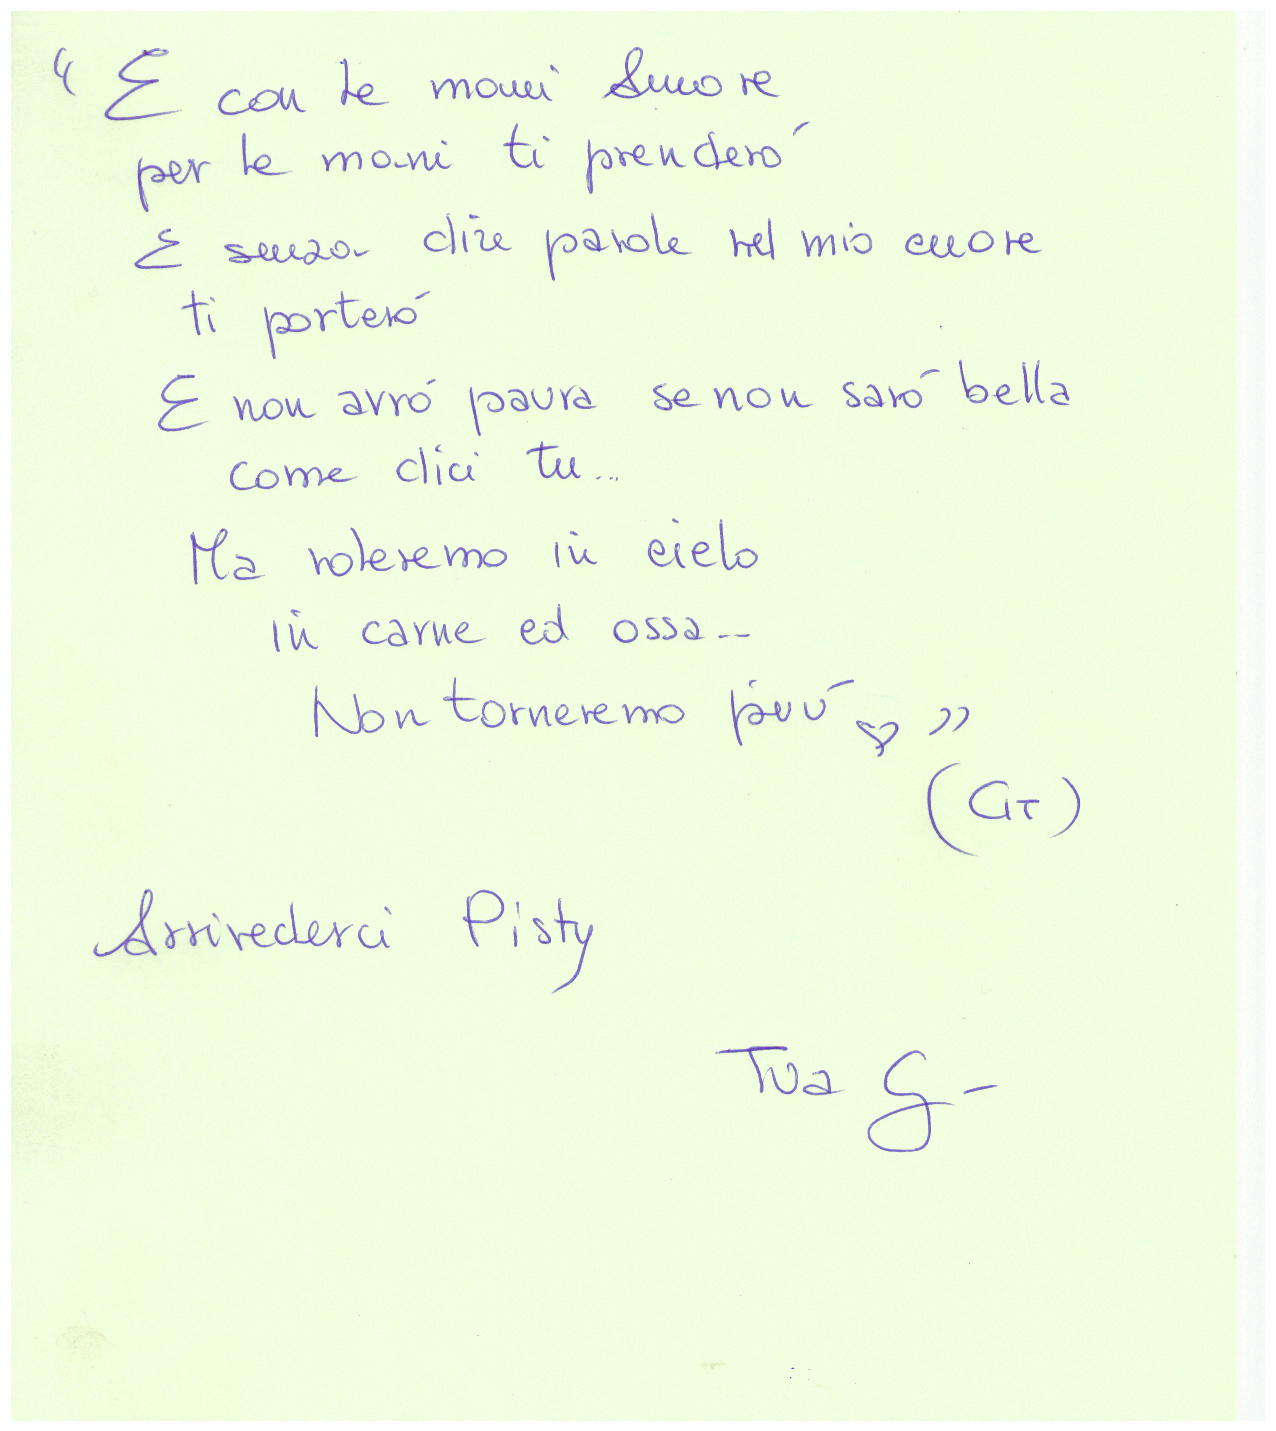 “E con le mani Amore
per le mani ti prenderó
E senza dire parole nel mio cuore
ti porteró
E non avró paura se non saró bella
come dici tu...
Ma voleremo in cielo
in carne ed ossa --
Non torneremo piú ♡ ”
(GT)
Arrivederci Pisty
Tua G -